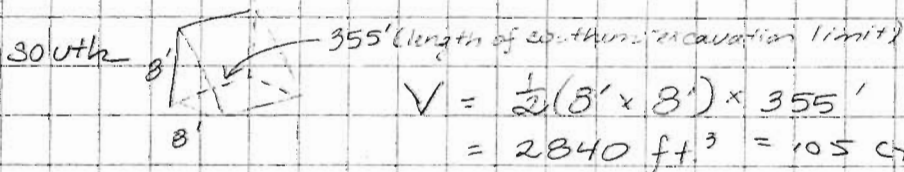 South
8'
355' (length of southern excavation limit)
V = ½(8' x 8') x 355'
8'
= 2840 ft³ = 105